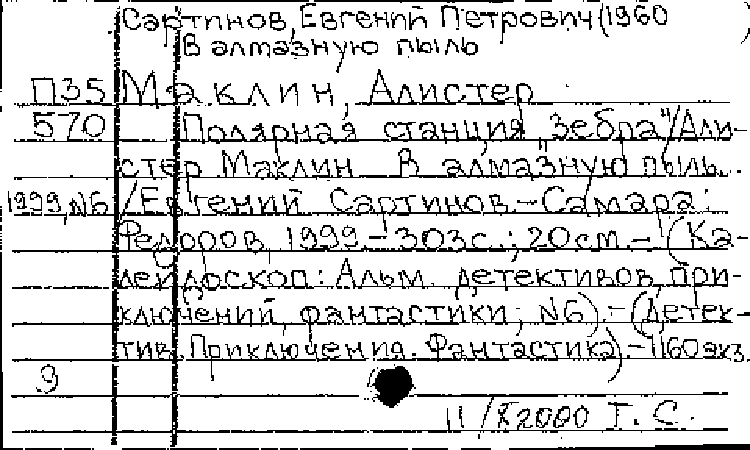 Сартинов, Евгений Петрович (1960 )
В алмазную пыль
П35 Маклин, Алистер
570 Полярная станция "Зебра"/Али-
стер Маклин. В алмазную пыль.
1999, N6 /Евгений Сартинов.-Самара:
Федоров, 1999.-303с.; 20см.-(Ка-
лейдоскоп: Альм. детективов, при-
ключений, фантастики; N6).-(Детек-
тив. Приключения. Фантастика).-1160экз.
9
11/X2000 Т. С.